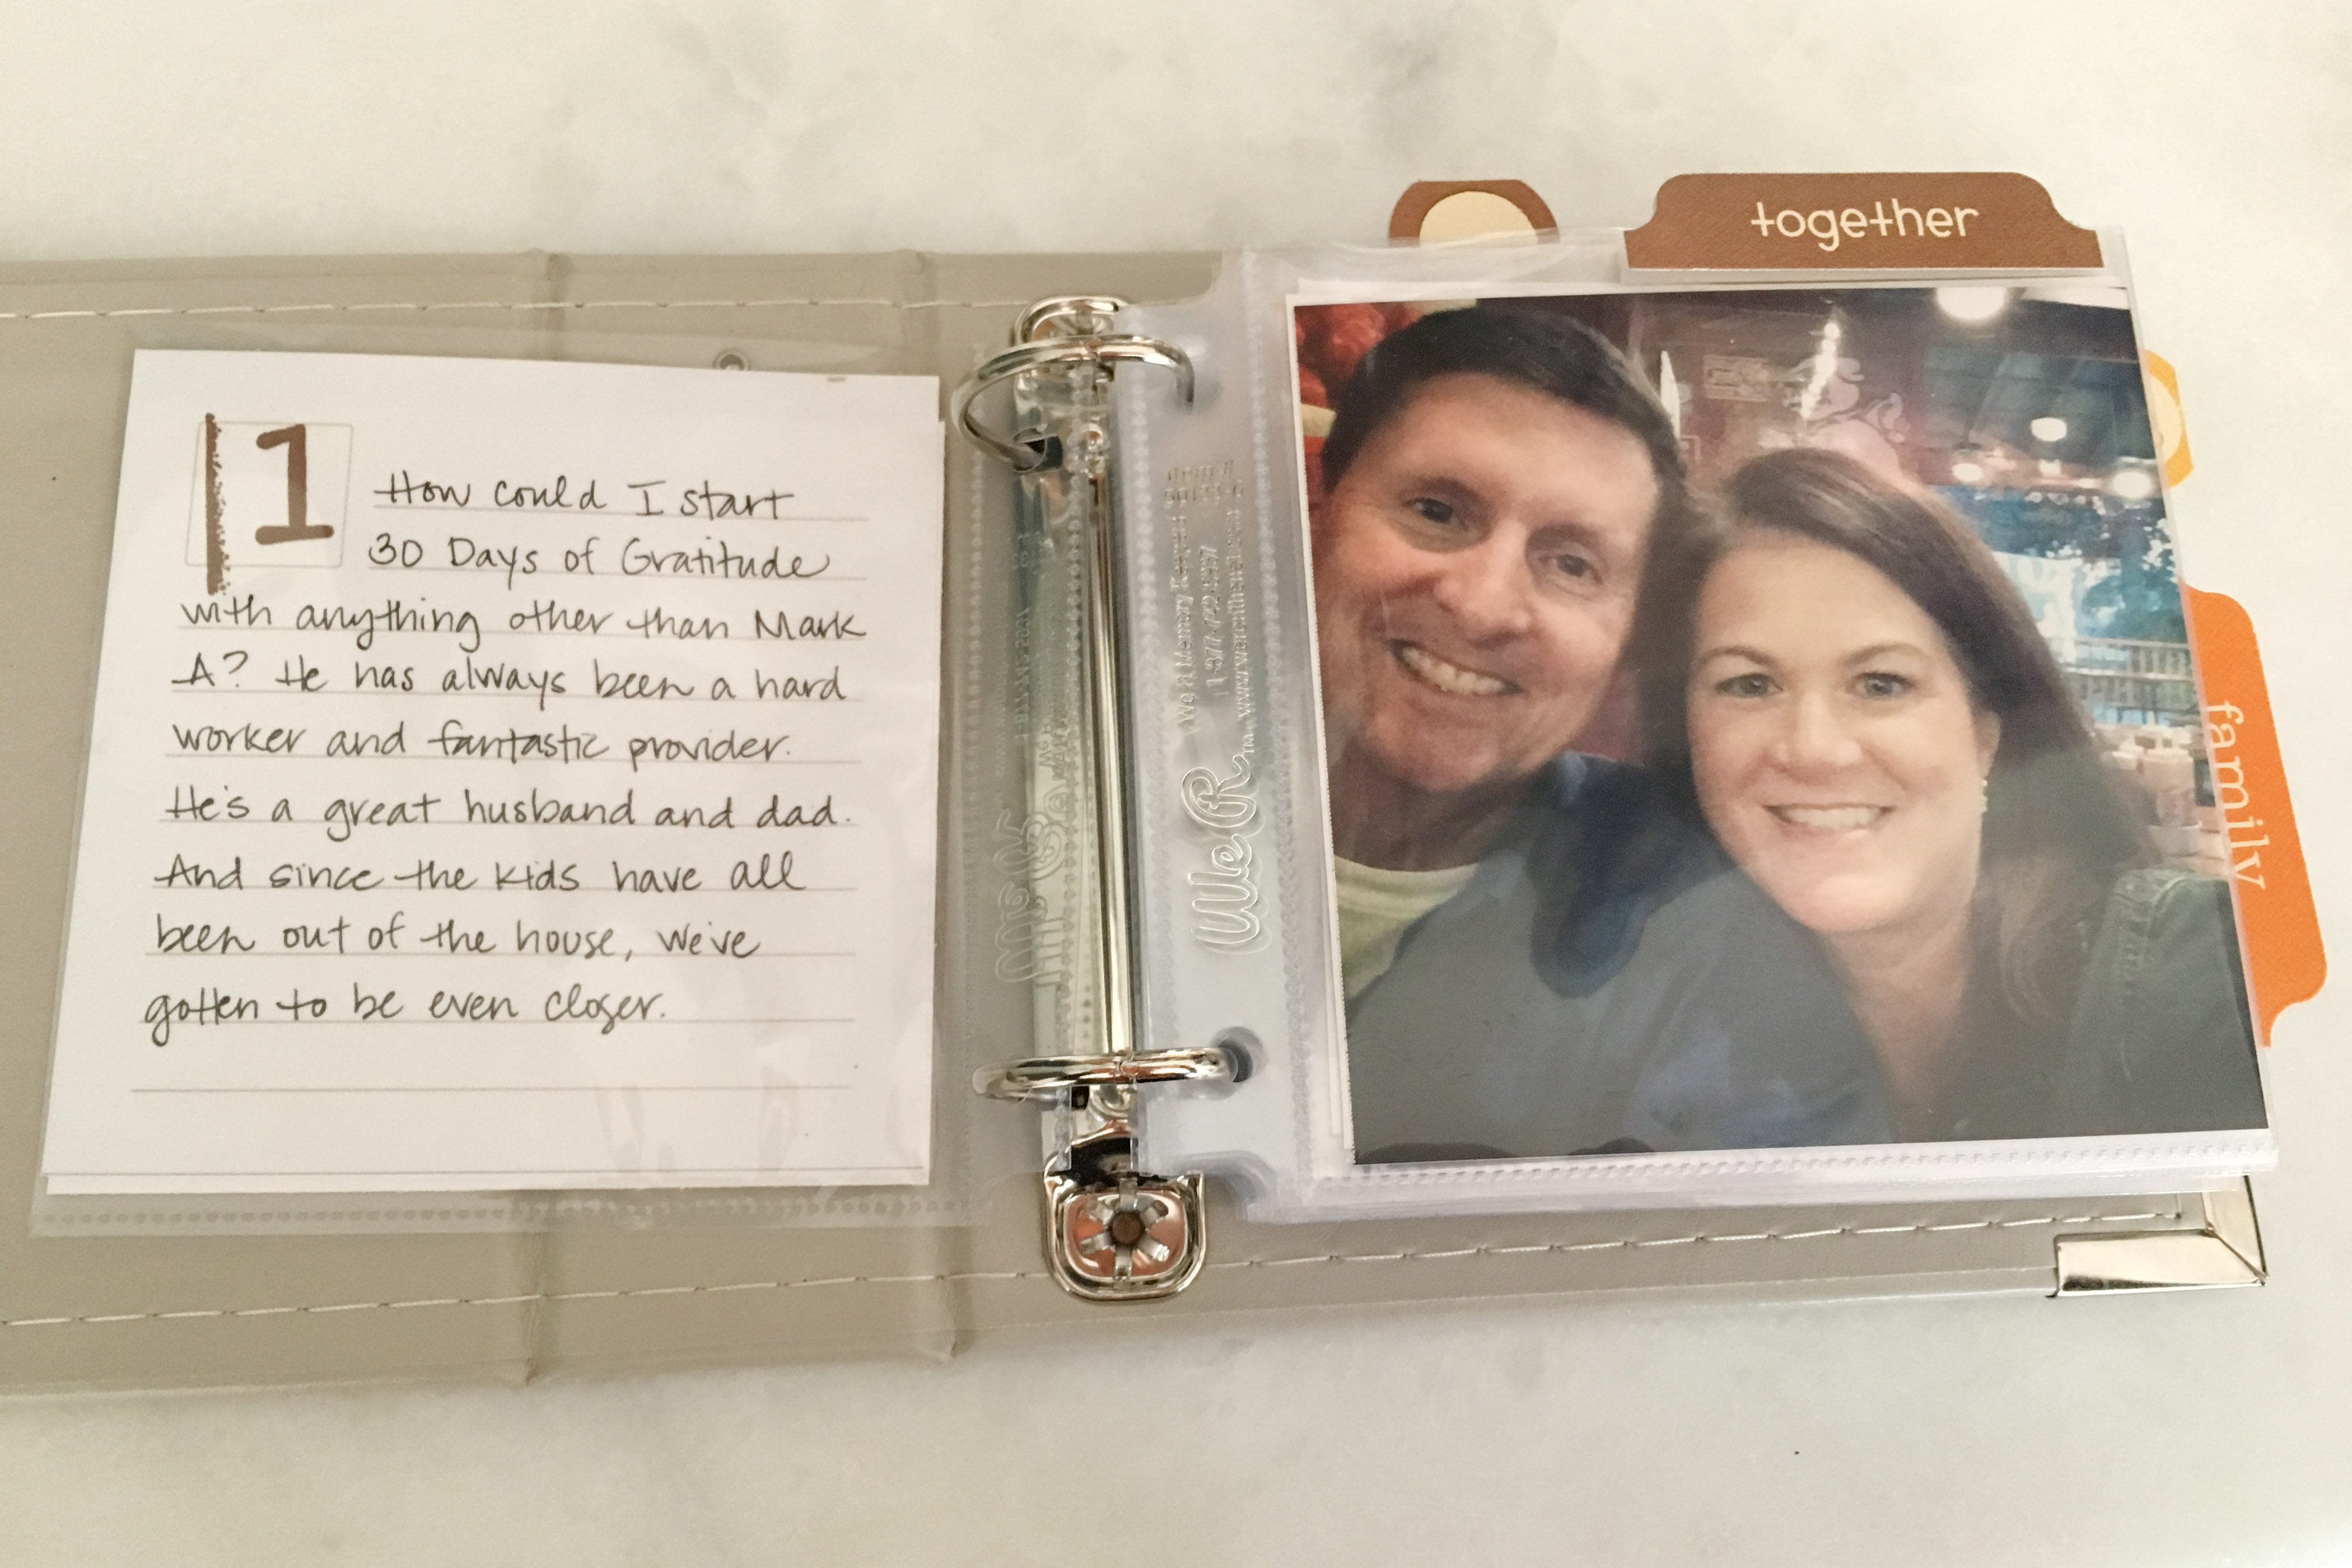 1
How could I start
30 Days of Gratitude
with anything other than Mark
A? He has always been a hard
worker and fantastic provider.
He's a great husband and dad.
And since the kids have all
been out of the house, we've
gotten to be even closer.
We R™
We R Memory Keepers
together
family